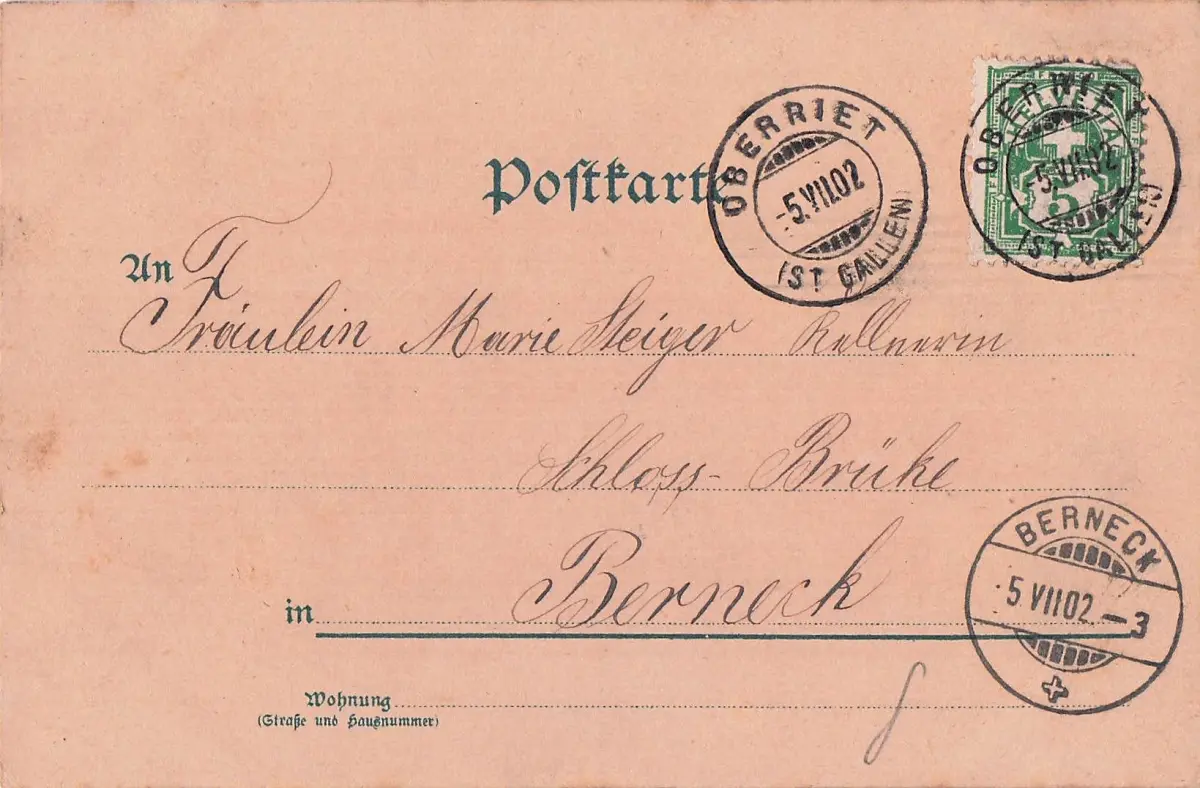 Postkarte
OBERRIET
-5.VII.02
(ST GALLEN)
HELVETIA
5
OBERRIET
-5.VII.02
(ST GALLEN)
An
Fräulein Marie Steiger Kellnerin
Schloss-Brüke
in Berneck
BERNECK
5 VII 02 -3
Wohnung
(Straße und Hausnummer)